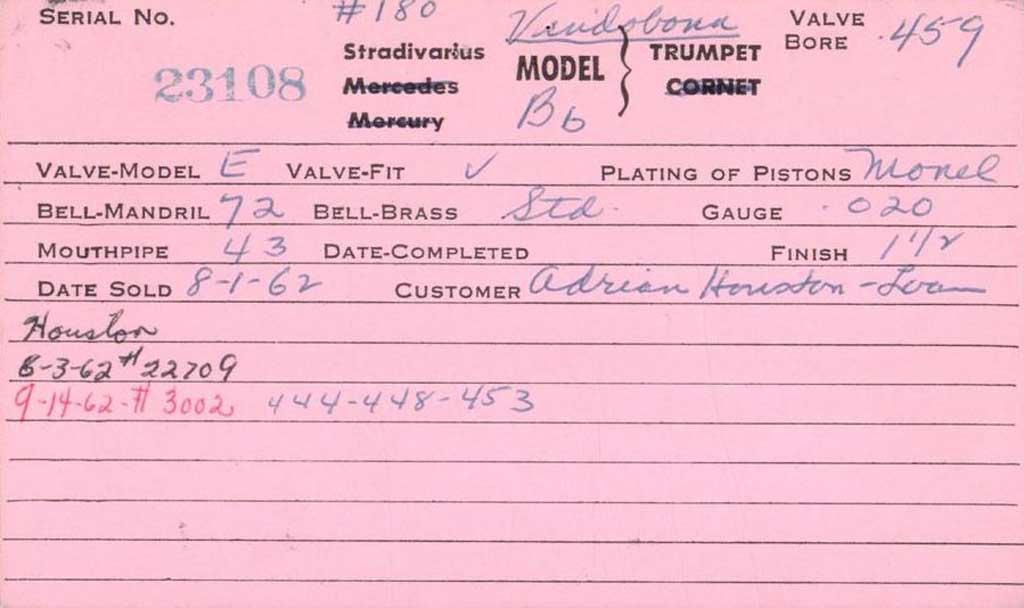 SERIAL No. #180 Vindobona VALVE BORE .459
23108 Stradivarius MODEL TRUMPET
Mercedes CORNET
Mercury Bb
VALVE-MODEL E VALVE-FIT ✓ PLATING OF PISTONS Monel
BELL-MANDRIL 72 BELL-BRASS Std. GAUGE .020
MOUTHPIPE 43 DATE-COMPLETED FINISH 1 1/2
DATE SOLD 8-1-62 CUSTOMER Adrian Houston - Loan
Houston
8-3-62 # 22709
9-14-62-# 3002 444-448-453